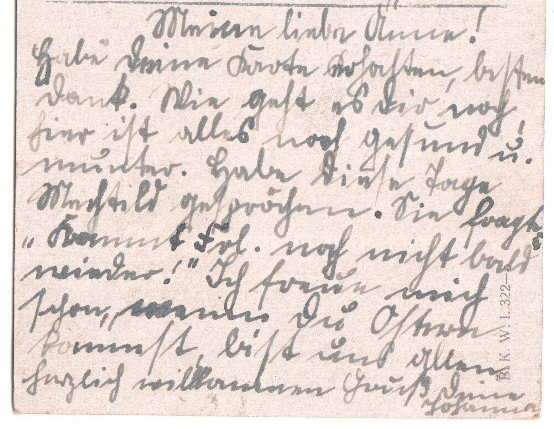 Meine liebe Änne!
Habe Deine Karte erhalten, besten
Dank. Wie geht es dir noch,
hier ist alles noch gesund u.
munter. Habe diese Tage
Mechtild gesprochen. Sie fragte
„Kommt Frl. noch nicht bald
wieder!" Ich freue mich
schon, wenn Du Ostern
kommst, bist uns allen
herzlich willkommen Gruß Deine
Johanna
B. K. W. I. 322-